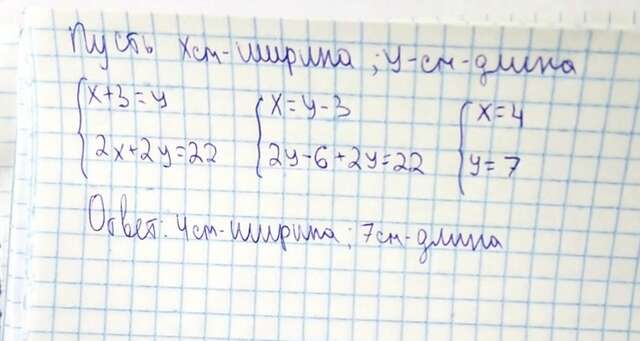 Пусть x см-ширина ; y-см-длина
{ x+3=y { x=y-3 { x=4
2x+2y=22 2y-6+2y=22 y=7
Ответ: 4см-ширина; 7см-длина